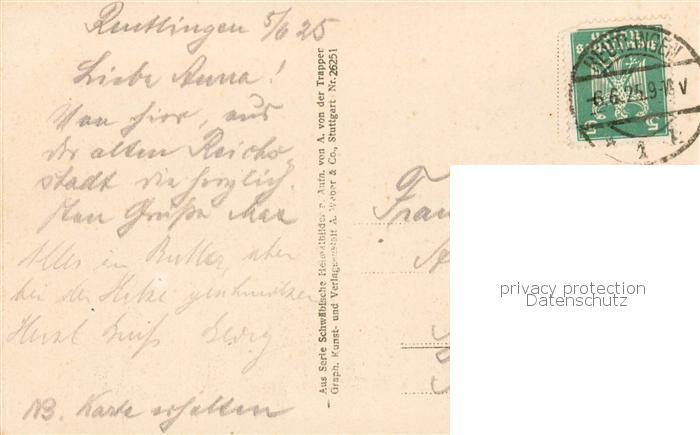 Reutlingen 5/6 25
Liebe Anna!
Von hier, aus
der alten Reichs-
stadt die herzlich-
sten Grüße Max
Alles in Butter, aber
bei der Hitze geschmolzen
Herzl. Gruß Georg
NB. Karte erhalten
Aus Serie Schwäbische Heimatbilder n. Aufn. von A. von der Trappen
Graph. Kunst- und Verlagsanstalt A. Weber & Co., Stuttgart Nr. 26251
REUTLINGEN
-6.6.25.9-10V
5 5
Frau
privacy protection
Datenschutz